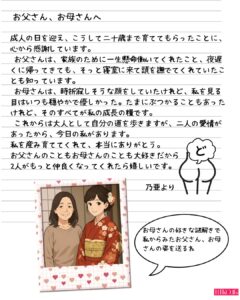 お父さん、お母さんへ
成人の日を迎え、こうして二十歳まで育ててもらったことに、
心から感謝しています。
お父さんは、家族のために一生懸命働いてくれたこと、夜遅
くに帰ってきても、そっと寝室に来て頭を撫でてくれていたこ
とも知っています。
お母さんは、時折寂しそうな顔をしていたけれど、私を見る
目はいつも穏やかで優しかった。たまにぶつかることもあった
けれど、そのすべてが私の成長の糧です。
これからは大人として自分の道を歩きますが、二人の愛情が
あったから、今日の私があります。
私を産み育ててくれて、本当にありがとう。
お父さんのこともお母さんのことも大好きだから
2人がもっと仲良くなってくれたら嬉しいです。
ど
乃亜より
お母さんの好きな謎解きで
私からみたお父さん、お母
さんの姿を送るね